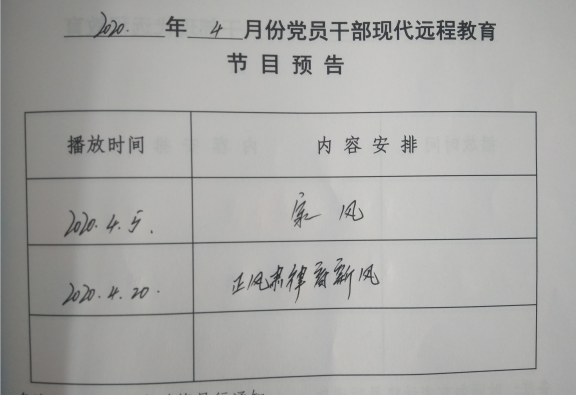 2020. 年 4 月份党员干部现代远程教育
节目预告
播放时间 内容安排
2020.4.5. 家风
2020.4.20. 正风肃律树新风